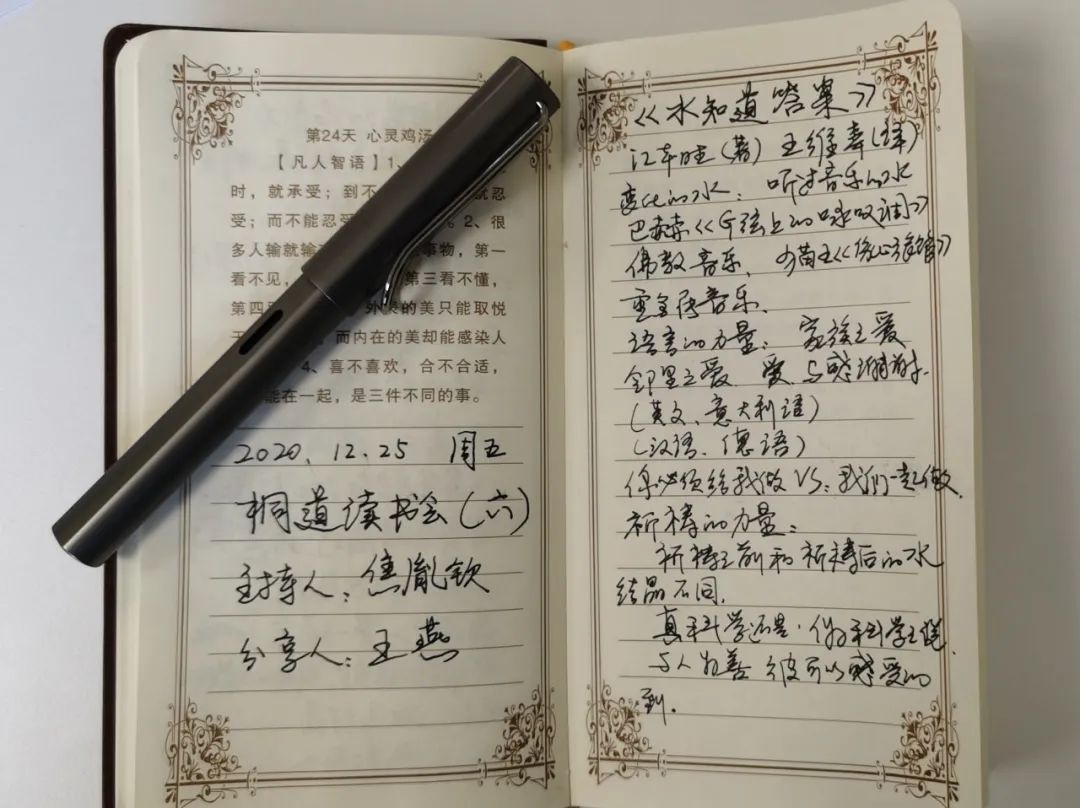 第24天 心灵鸡汤
【凡人智语】1、
时，就承受；到不 就忍
受；而不能忍受 。2、很
多人输就输 事物，第一
看不见， 第三看不懂，
第四 外表的美只能取悦
而内在的美却能感染人
4、喜不喜欢，合不合适，
能在一起，是三件不同的事。
2020.12.25 周五
桐道读书会(六)
主持人：焦胤钦
分享人：王燕
《水知道答案》
江本胜(著) 王维幸(译)
变化的水：听过音乐的水
巴赫《G弦上的咏叹调》
佛教音乐、
重金属音乐.
语言的力量：家族之爱
邻里之爱 爱与感谢
(英文、意大利语)
(汉语、德语)
你必须给我做 VS：我们一起做.
祈祷的力量：
祈祷之前和祈祷后的水
结晶不同.
真科学还是.伪科学
与人为善 彼可以感受的
到.